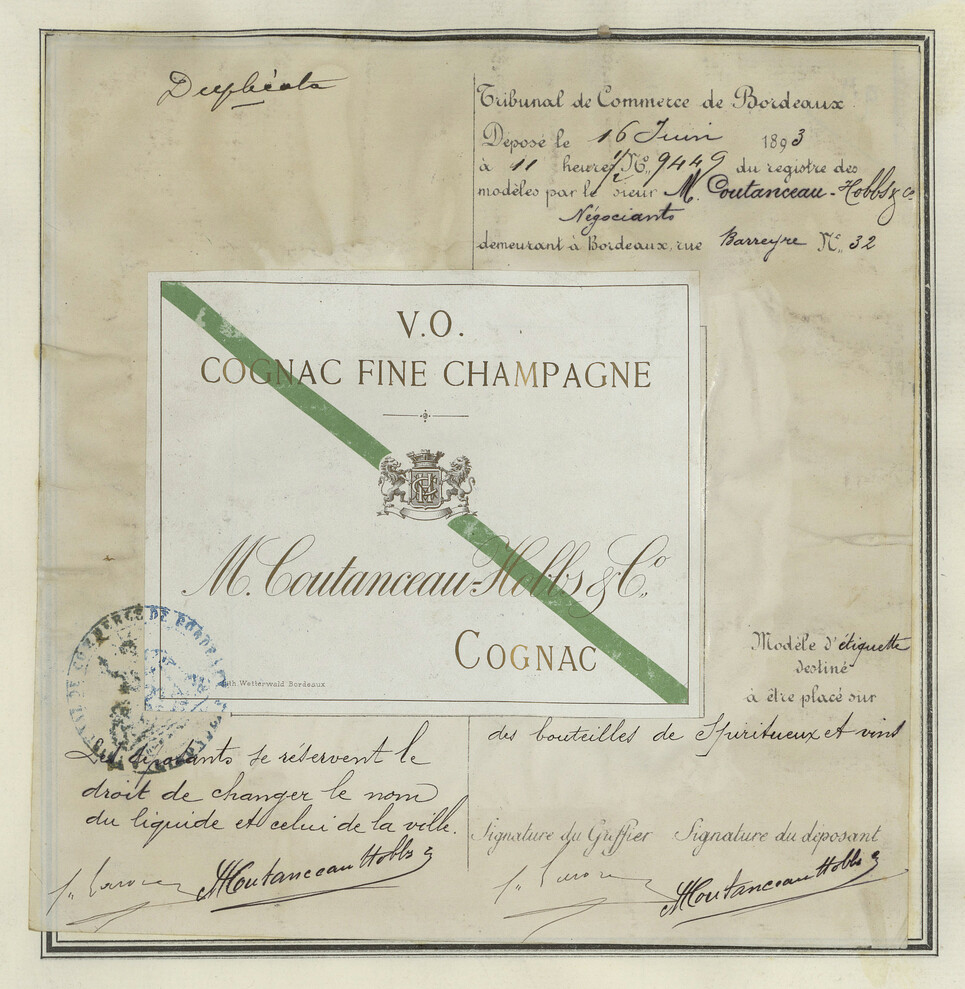 Duplicata
Tribunal de Commerce de Bordeaux
Déposé le 16 Juin 1893
à 11 heures 1/2 No. 9449 du registre des
modèles par le sieur M. Coutanceau-Hobbs & Co
Négociants
demeurant à Bordeaux, rue Barreyre No. 32
V.O.
COGNAC FINE CHAMPAGNE
M. Coutanceau-Hobbs & Co.
COGNAC
Lith. Wetterwald Bordeaux
TRIBUNAL DE COMMERCE DE BORDEAUX
Modèle d'étiquette
destiné
à être placé sur
des bouteilles de Spiritueux et vins
Les déposants se réservent le
droit de changer le nom
du liquide et celui de la ville.
Signature du Griffier Signature du déposant
MCoutanceauHobbs
MCoutanceauHobbs